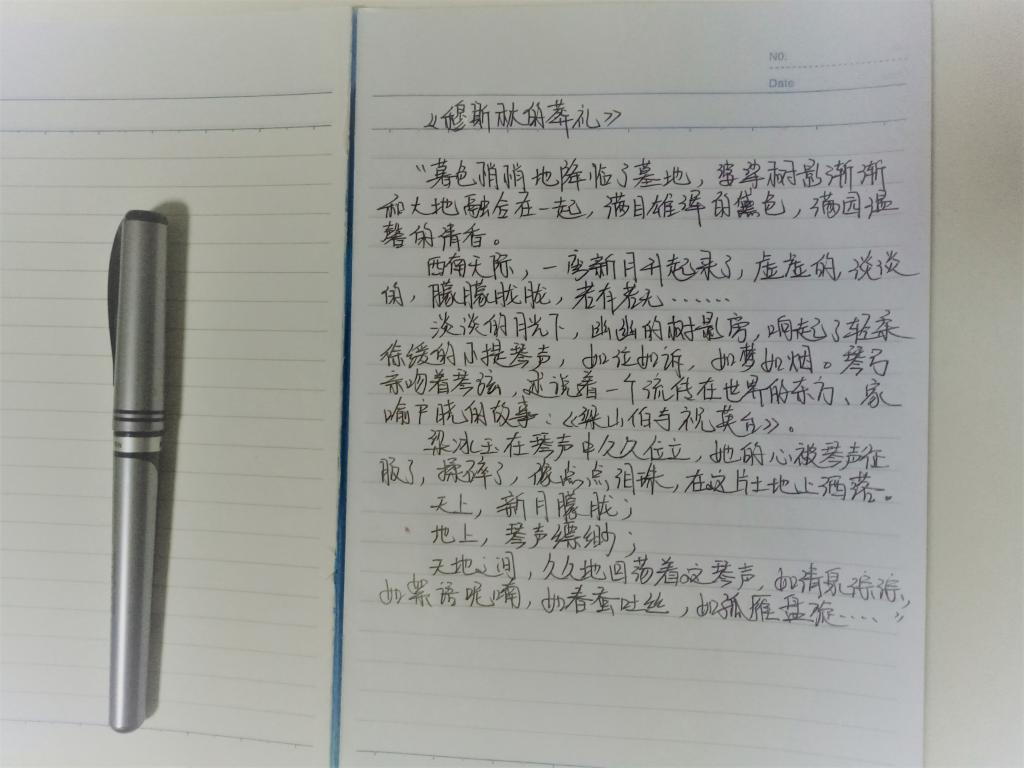 NO:
Date
《穆斯林的葬礼》
“暮色悄悄地降临了墓地，婆娑树影渐渐
和大地融合在一起，满目雄浑的黛色，满园温
馨的清香。
西南天际，一弯新月升起来了，虚虚的，淡淡
的，朦朦胧胧，若有若无……
淡淡的月光下，幽幽的树影旁，响起了轻柔
徐缓的小提琴声，如泣如诉，如梦如烟。琴弓
亲吻着琴弦，述说着一个流传在世界的东方、家
喻户晓的故事：《梁山伯与祝英台》。
梁冰玉在琴声中久久伫立，她的心被琴声征
服了，揉碎了，像点点泪珠，在这片土地上洒落。
天上，新月朦胧；
地上，琴声缥缈；
天地之间，久久地回荡着这琴声，如清泉淙淙，
如絮语呢喃，如春蚕吐丝，如孤雁盘旋……”